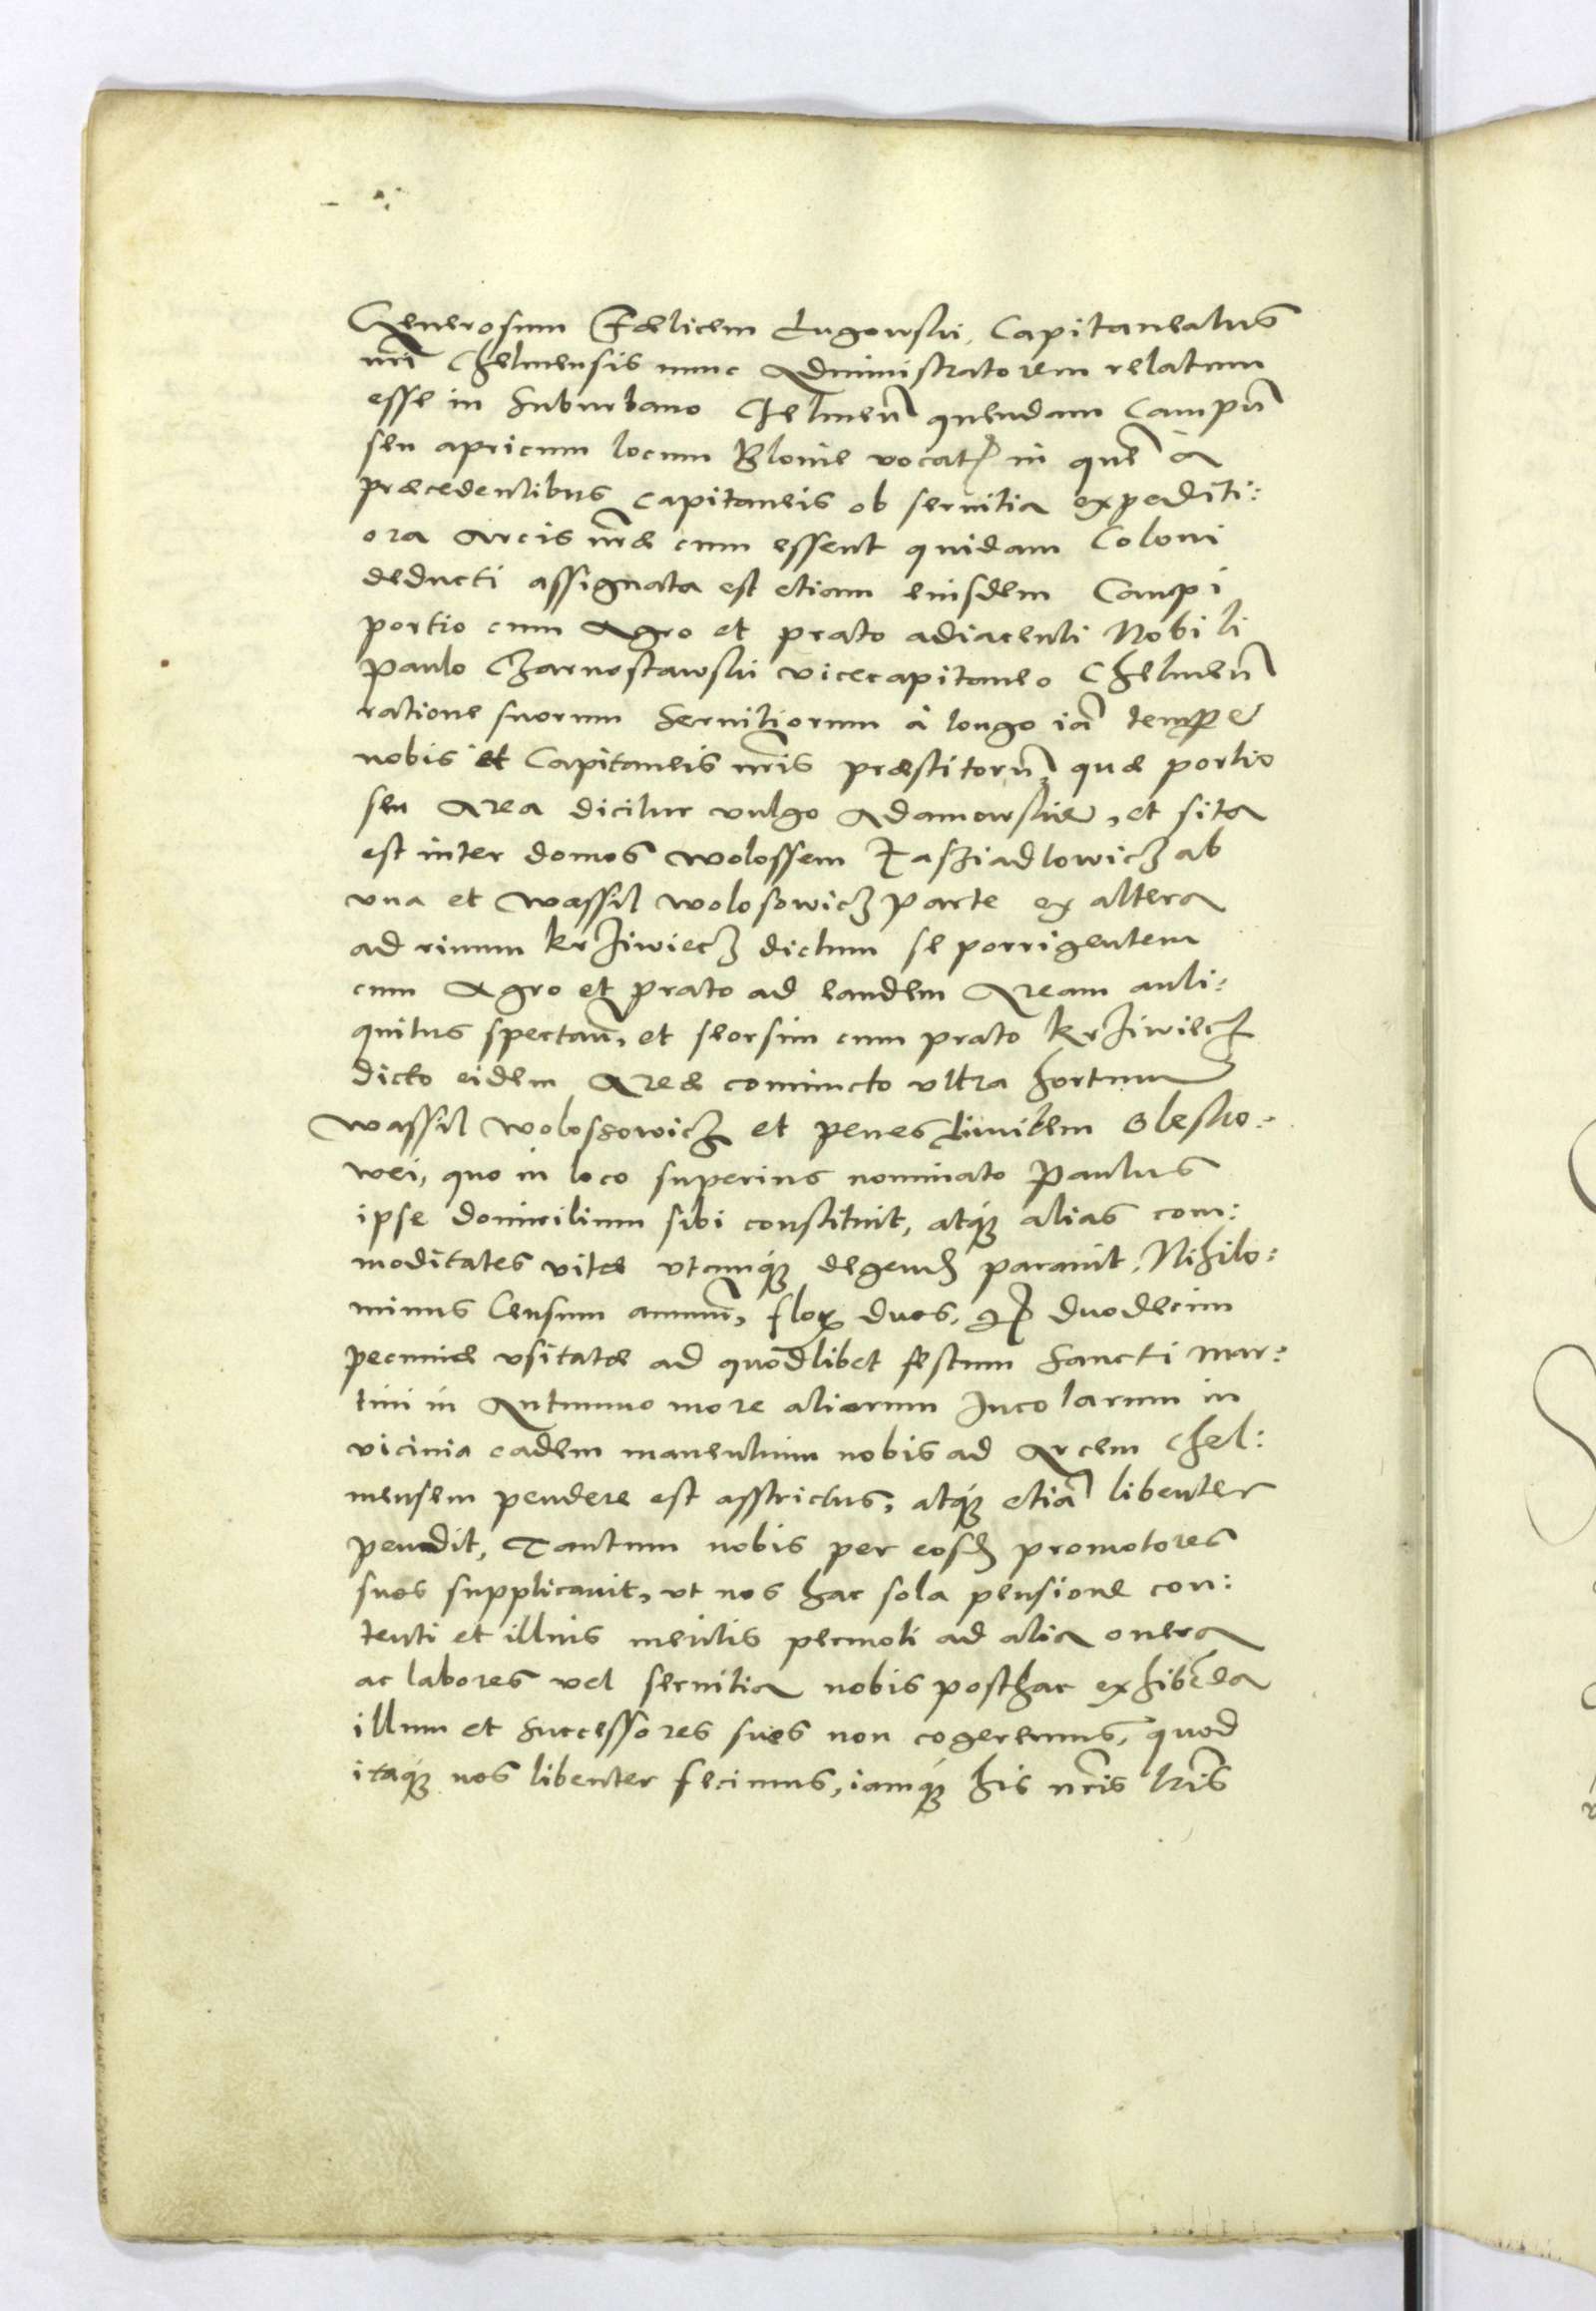 Generosum Fœlicem Lugowski, Capitaneatus
nrī Chelmensis nunc Administratorem relatum
esse in Suburbano Chelmeñ quendam Campū
seu apricum locum Blonie vocat in quē a
præcedentibus Capitaneis ob servitia expediti:
ora Arcis nræ cum essent quidam Coloni
deducti assignata est etiam eiusdem Campi
portio cum Agro et prato adiacenti Nobili
Paulo Czarnostawski vicecapitaneo Chelmeñ
ratione suorum Servitiorum à longo iā tempore
nobis et Capitaneis nris præstitorū, quæ portio
seu Area dicitur vulgo Adamowskie, et sita
est inter domos wolossem ab
vna et wassil wolosowicz parte ex altera
ad rivum krziwiecz dictum se porrigentem
cum Agro et prato ad eandem Aream anti:
quitus spectañ, et seorsim cum prato krziwiecz
dicto eidem Areæ coniuncto vltra hortum
wassil wolossowicz et penes limitem Olesko:
wei, quo in loco superius nominato Paulus
ipse domicilium sibi constituit, atq́ue alias com:
moditates vitæ vtcunq́ue degend parauit, Nihilo:
minus Censum annuū, flor duos, gr duodecim
pecuniæ vsitatæ ad quodlibet festum Sancti Mar:
tini in Autumno more aliorum Incolarum in
vicinia eadem manentium nobis ad Arcem Chel:
mensem pendere est asstrictus, atq́ue etiā libenter
pendit, Tantum nobis per eosd promotores
suos supplicauit, vt nos hac sola pensione con:
tenti et illius meritis permoti ad alia onera
ac labores vel servitia nobis posthac exhibēda
illum et Successores suos non cogeremus, quod
itaq́ue nos libenter fecimus, iamq́ue his nris lris